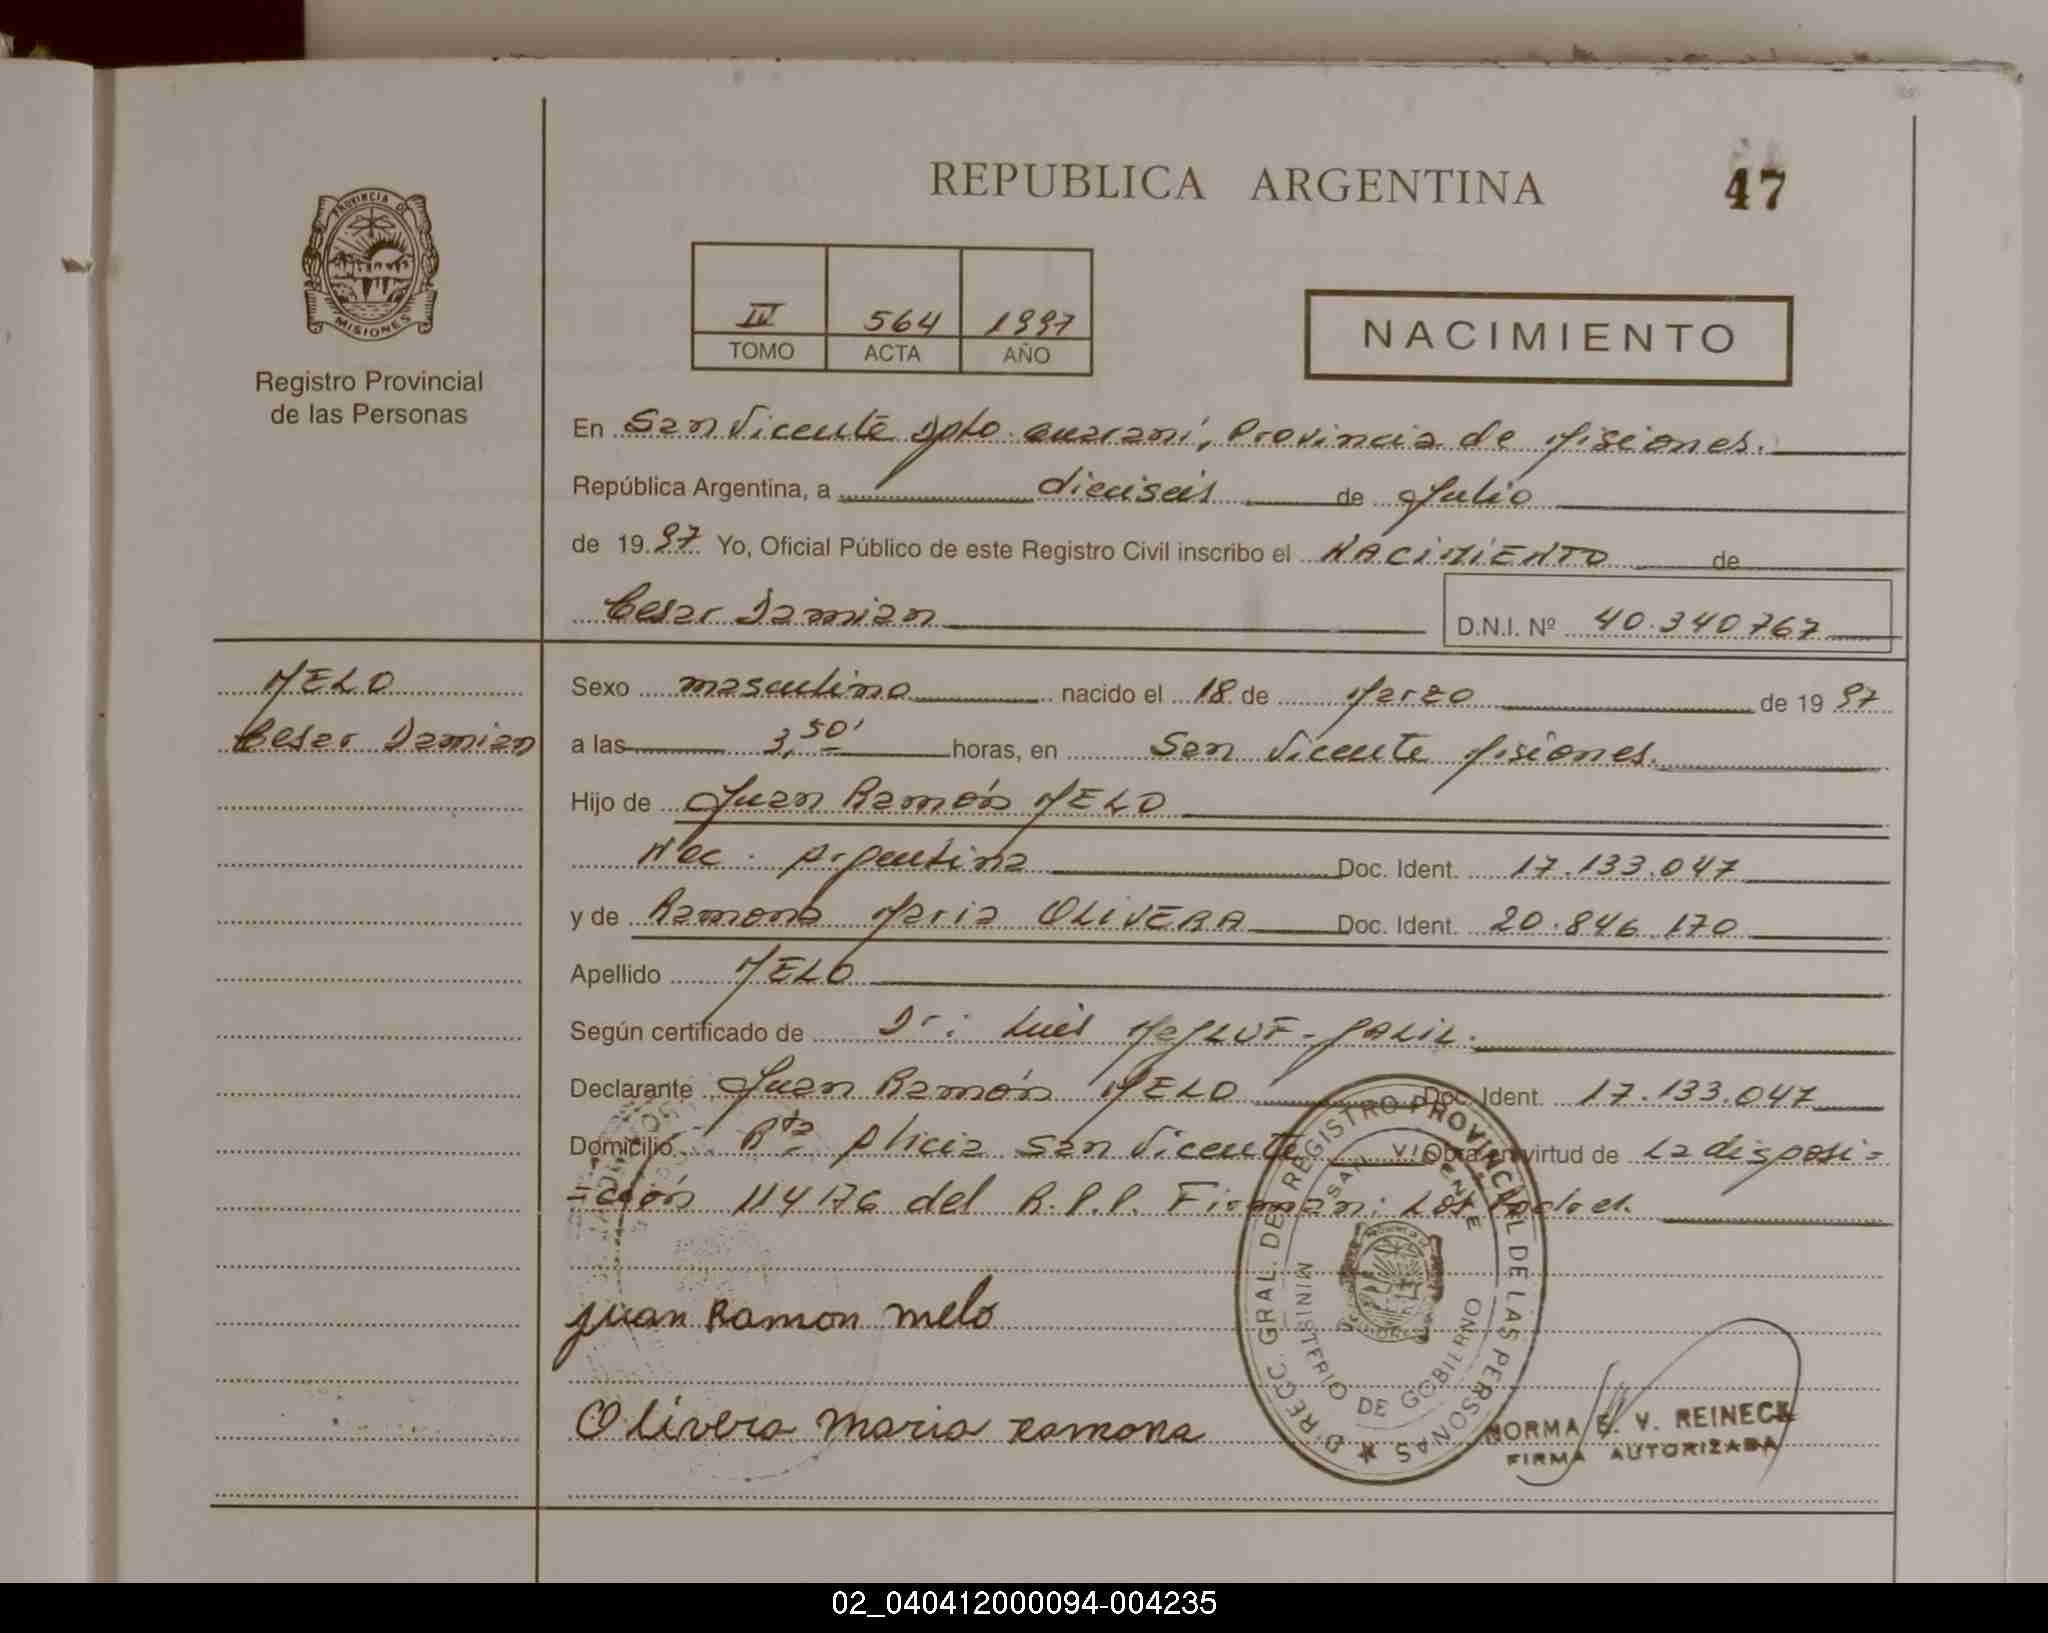 REPUBLICA ARGENTINA
47
PROVINCIA DE
MISIONES
Registro Provincial
de las Personas
IV 564 1997
TOMO ACTA AÑO
NACIMIENTO
En San Vicente Dpto. Guaraní, Provincia de Misiones.
República Argentina, a dieciseis de Julio
de 1997 Yo, Oficial Público de este Registro Civil inscribo el NACIMIENTO de
Cesar Damian D.N.I. Nº 40.340767
MELO
Cesar Damian
Sexo masculino nacido el 18 de Marzo de 1997
a las 3,50' horas, en San Vicente Misiones.
Hijo de Juan Ramón MELO
Nac. Argentina Doc. Ident. 17.133.047
y de Ramona Maria OLIVERA Doc. Ident. 20.846.170
Apellido MELO
Según certificado de Dr: Luis GALIL.
Declarante Juan Ramón MELO Doc. Ident. 17.133.047
Domicilio Rta Alicia San Vicente Obra en virtud de La disposi=
=ción 114176 del R.P.P. Firman: Los Padres.
Juan Ramon melo
Olivera Maria Ramona
DIRECC. GRAL. DEL REGISTRO PROVINCIAL DE LAS PERSONAS
SAN VICENTE
MINISTERIO DE GOBIERNO
NORMA E. V. REINECK
FIRMA AUTORIZADA
02_040412000094-004235